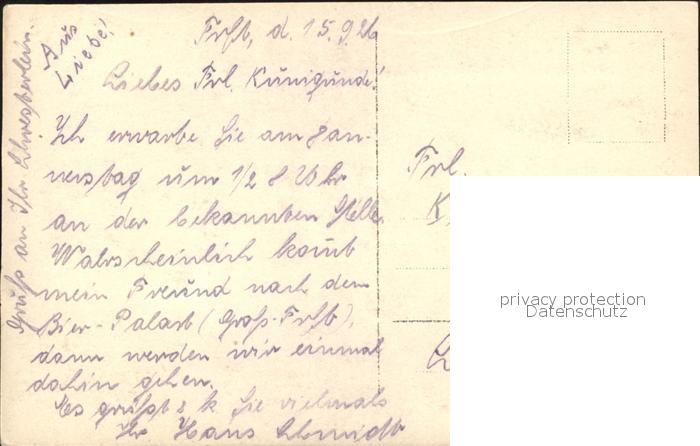 Aus
Liebe!
Frkft, d. 15.9.26
Liebes Frl. Kunigunde!
Ich erwarte Sie am Don-
nerstag um 1/2 8 Uhr
an der bekannten Stelle
Wahrscheinlich kommt
mein Freund nach dem
Bier-Palast (Groß-Frkft),
dann werden wir einmal
dahin gehen.
Es grüßt Sie vielmals
Ihr Hans Schmidt
Gruß an Ihr Schwesterlein.
Frl.
K
privacy protection
Datenschutz